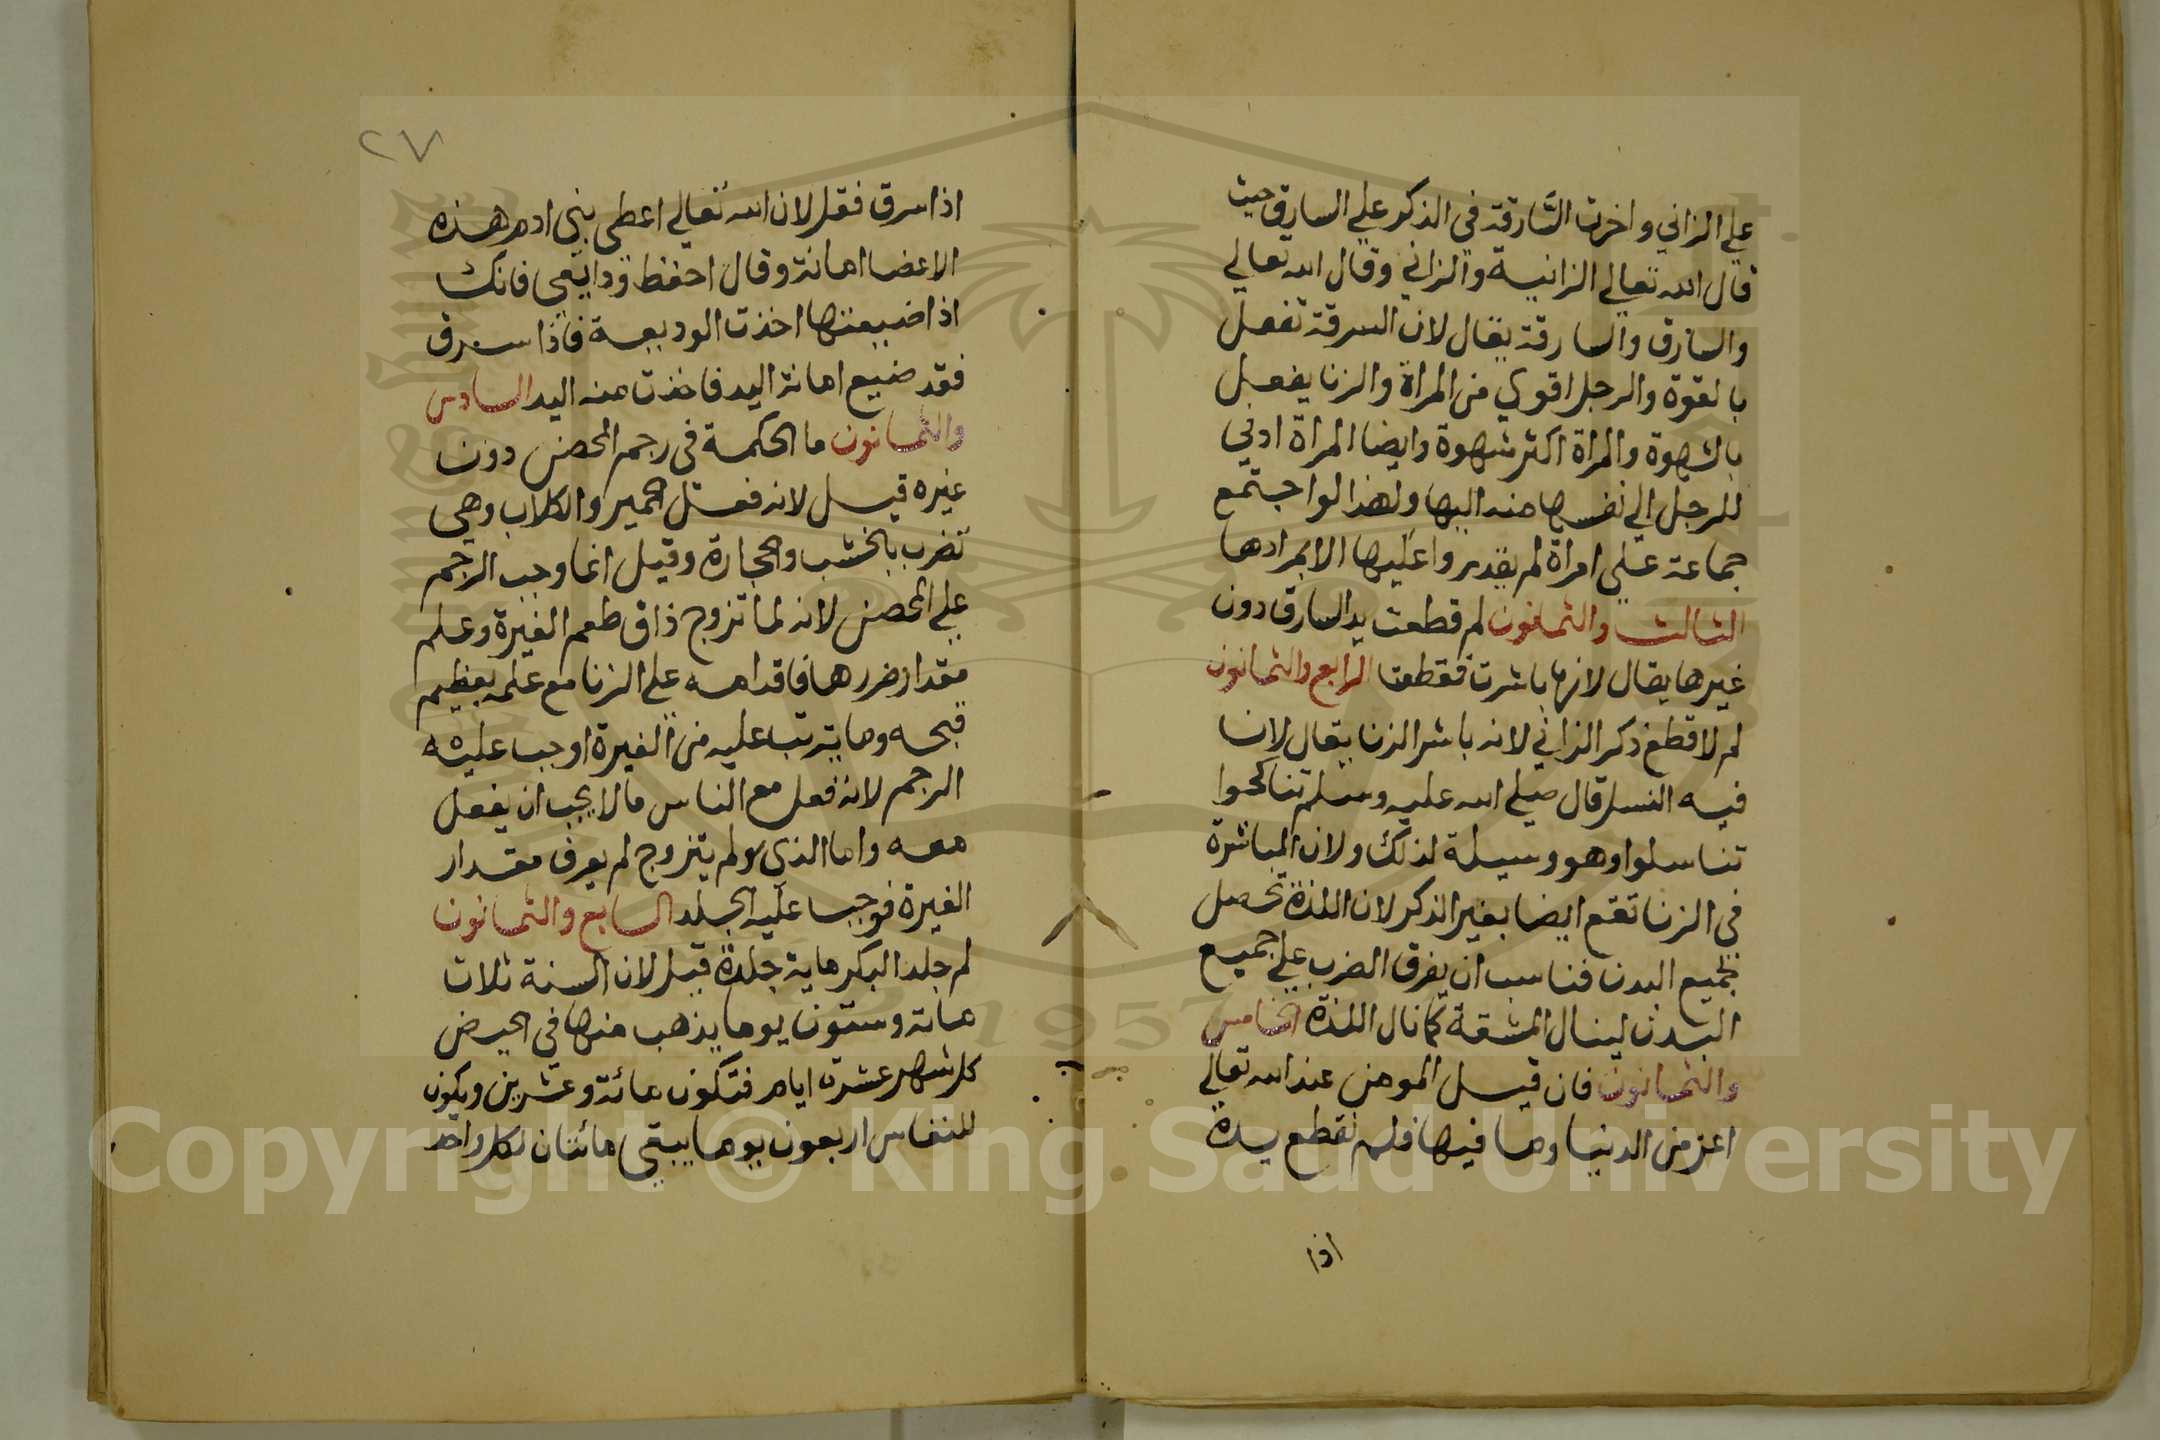 علي الزاني واخرت السَّارقة في الذكر علي السارق حيث
قال الله تعالي الزانية والزاني وقال الله تعالي
والسارق والسارقة يقال لان السرقة تفعل
بالقوة والرجل اقوي من المراة والزنا يفعل
بالشهوة والمراة اكثر شهوة وايضا المراة ادني
للرجل الي نفسها منه اليها ولهذا لو اجتمع
جماعة علي امراة لم يقدروا عليها الا بمرادها
الثالث والثمانون لم قطعت يد السارق دون
غيرها يقال لانها باشرت فقطعت الرابع والثمانون
لم لا قطع ذكر الزاني لانه باشر الزنا يقال لان
فيه النسل قال صلي الله عليه وسلم تناكحوا
تناسلوا وهو وسيلة لذلك ولان المباشرة
في الزنا تقع ايضا بغير الذكر لان اللذة تحصل
بجميع البدن فناسب ان يفرق الضرب علي جميع
البدن لينال المشقة كما نال اللذة الخامس
والثمانون فان قيل المومن عند الله تعالي
اعز من الدنيا وما فيها فلم تقطع يده
اذا
٢٧
اذا سرق فقل لان الله تعالي اعطي بني ادم هذه
الاعضا امانة وقال احفظ ودايعي فانك
اذا ضيعتها اخذت الوديعة فاذا سرق
فقد ضيع امانة اليد فاخذت منه اليد السادس
والثمانون ما الحكمة في رجم المحصن دون
غيره قيل لانه فعل الحمير والكلاب وهي
تضرب بالخشب والحجارة وقيل انما وجب الرجم
علي المحصن لانه لما تزوج ذاق طعم الغيرة وعلم
مقدار ضررها فاقدامه علي الزنا مع علمه بعظيم
قبحه وما يترتب عليه من الغيرة اوجب عليه
الرجم لانه فعل مع الناس مالا يحب ان يفعل
معه واما الذي لم يتزوج لم يعرف مقدار
الغيرة فوجب عليه الجلد السابع والثمانون
لم جلد البكر ماية جلدة قيل لان السنة ثلاث
مائة وستون يوما يذهب منها في الحيض
كل شهر عشرة ايام فتكون مائة وعشرين ويكون
للنفاس اربعون يوما يبقي مائتان لكل واحد
Copyright © King Saud University
1957